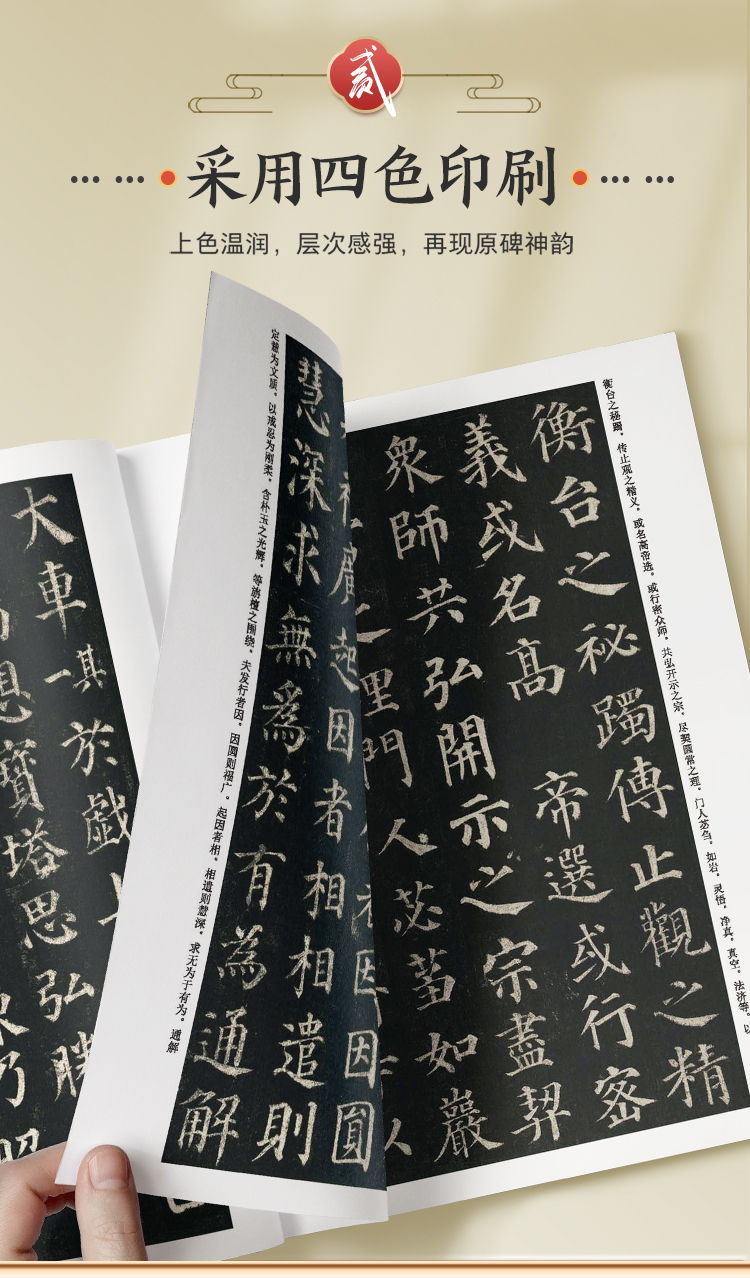 贰
采用四色印刷
上色温润，层次感强，再现原碑神韵
衡台之秘躅，传止观之精义，或名高帝选，或行密众师，共弘开示之宗，尽契圆常之理。门人苾刍，如岩，灵悟，净真，真空，法济等。以
衡台之秘躅傳止觀之精
義或名高 帝選或行密
衆師共弘開示之宗盡契
之理門人苾蒭如巖
人
者因因圓
福廣起因者相相遣則
慧深求無爲於有為通解
定慧为文质，以戒忍为刚柔，含朴玉之光辉，等旃檀之围绕。夫发行者因，因圆则福广。起因者相，相遣则慧深，求无为于有为。通解
大車一其於戯
寶塔思弘勝